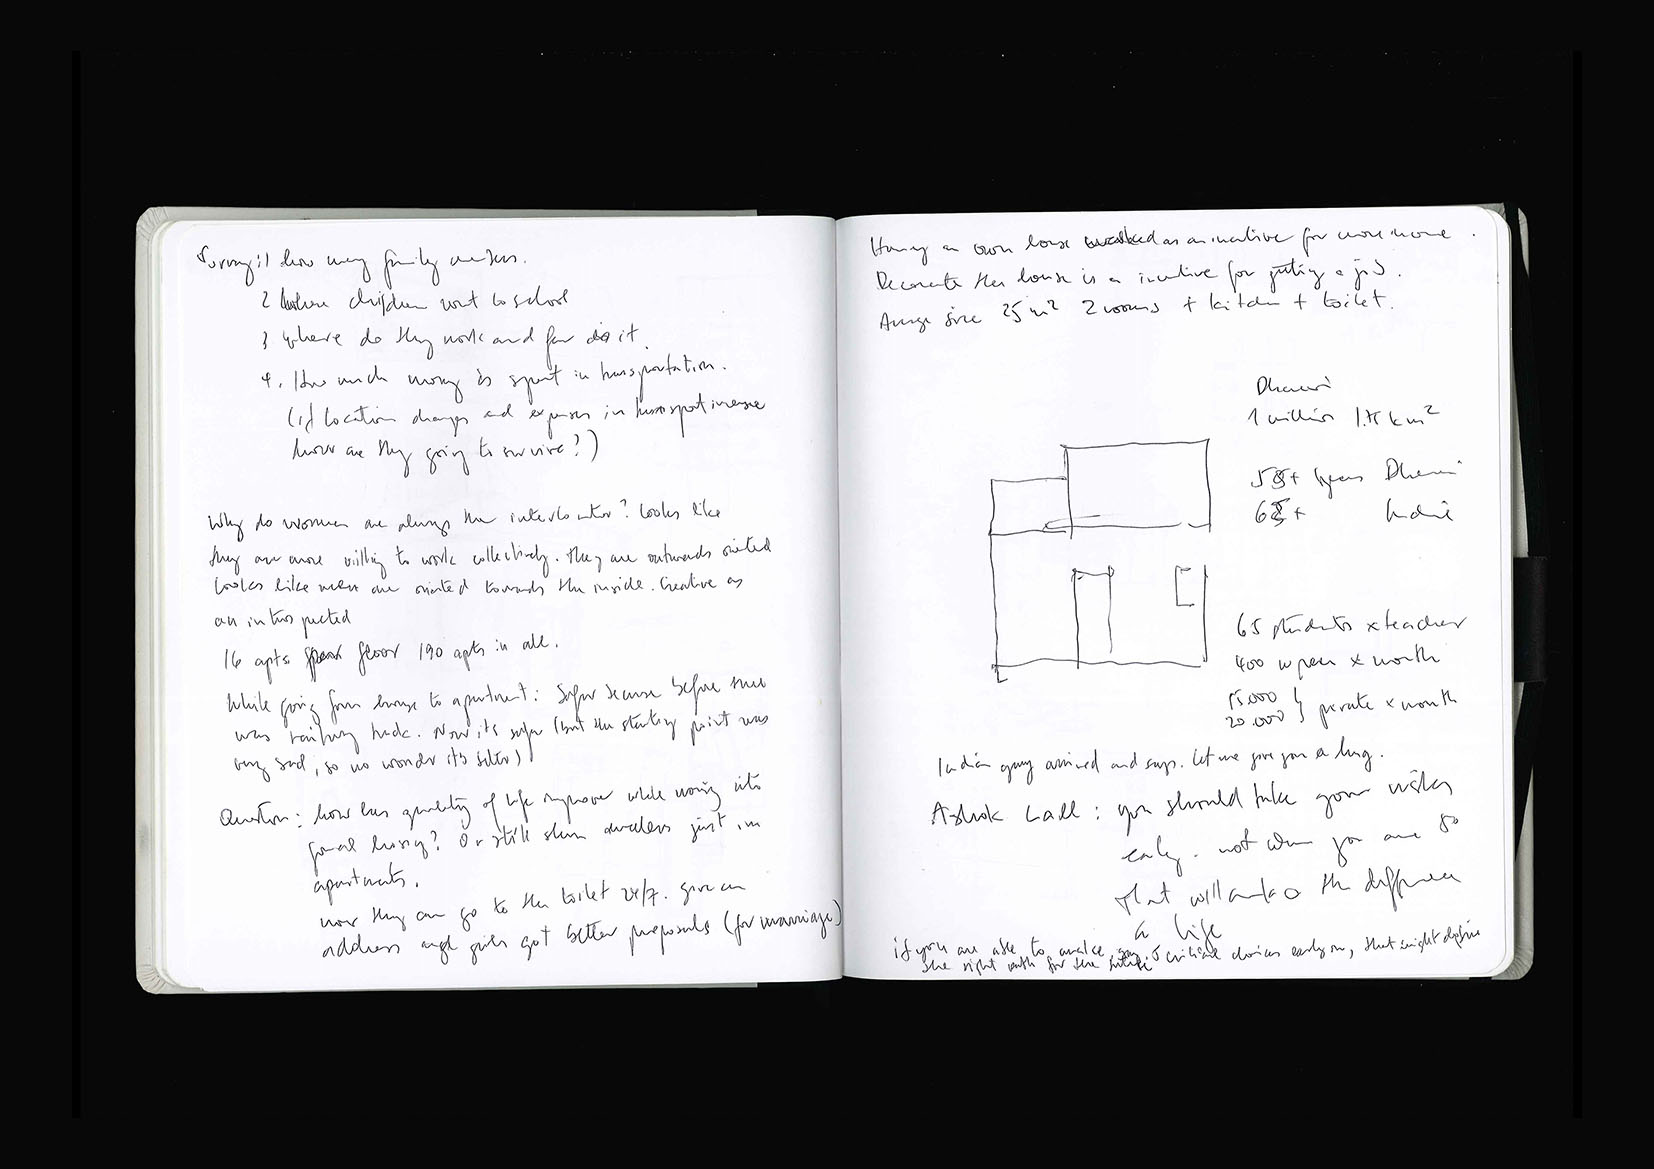 Survey: 1 how many family members.
2 Where children went to school
3 where do they work and far is it.
4. How much money is spent in transportation.
(if location changes and expenses in transport increase
how are they going to survive?)
Why do women are always the interlocutor? Looks like
they are more willing to work collectively. They are outwards oriented
looks like men are oriented towards the inside. Creative as
an introspected
16 apts floor 190 apts in all.
While going from house to apartment: Safer because before there
was railway track. Now its safer (but the starting point was
very sad, so no wonder its better)
Question: how has quality of life improve while moving into
formal housing? Or still slum dwellers just in
apartments.
now they can go to the toilet 24/7. given an
address and girls got better proposals (for marriage)
Having an own house worked as an incentive for more income.
Decorate the house is a incentive for getting a job.
Average size 25 m² 2 rooms + kitchen + toilet.
Dharavi
1 million 1.75 km²
58+ years Dharavi
68+ India
65 students x teacher
400 rupees x month
15.000
20.000 } private x month
Indian guy arrived and says. let me give you a hug.
Ashok Lall: you should take your risks
early. not when you are 50
that will make the difference
a life
if you are able to make 5 critical choices early on, that might define
the right path for the future